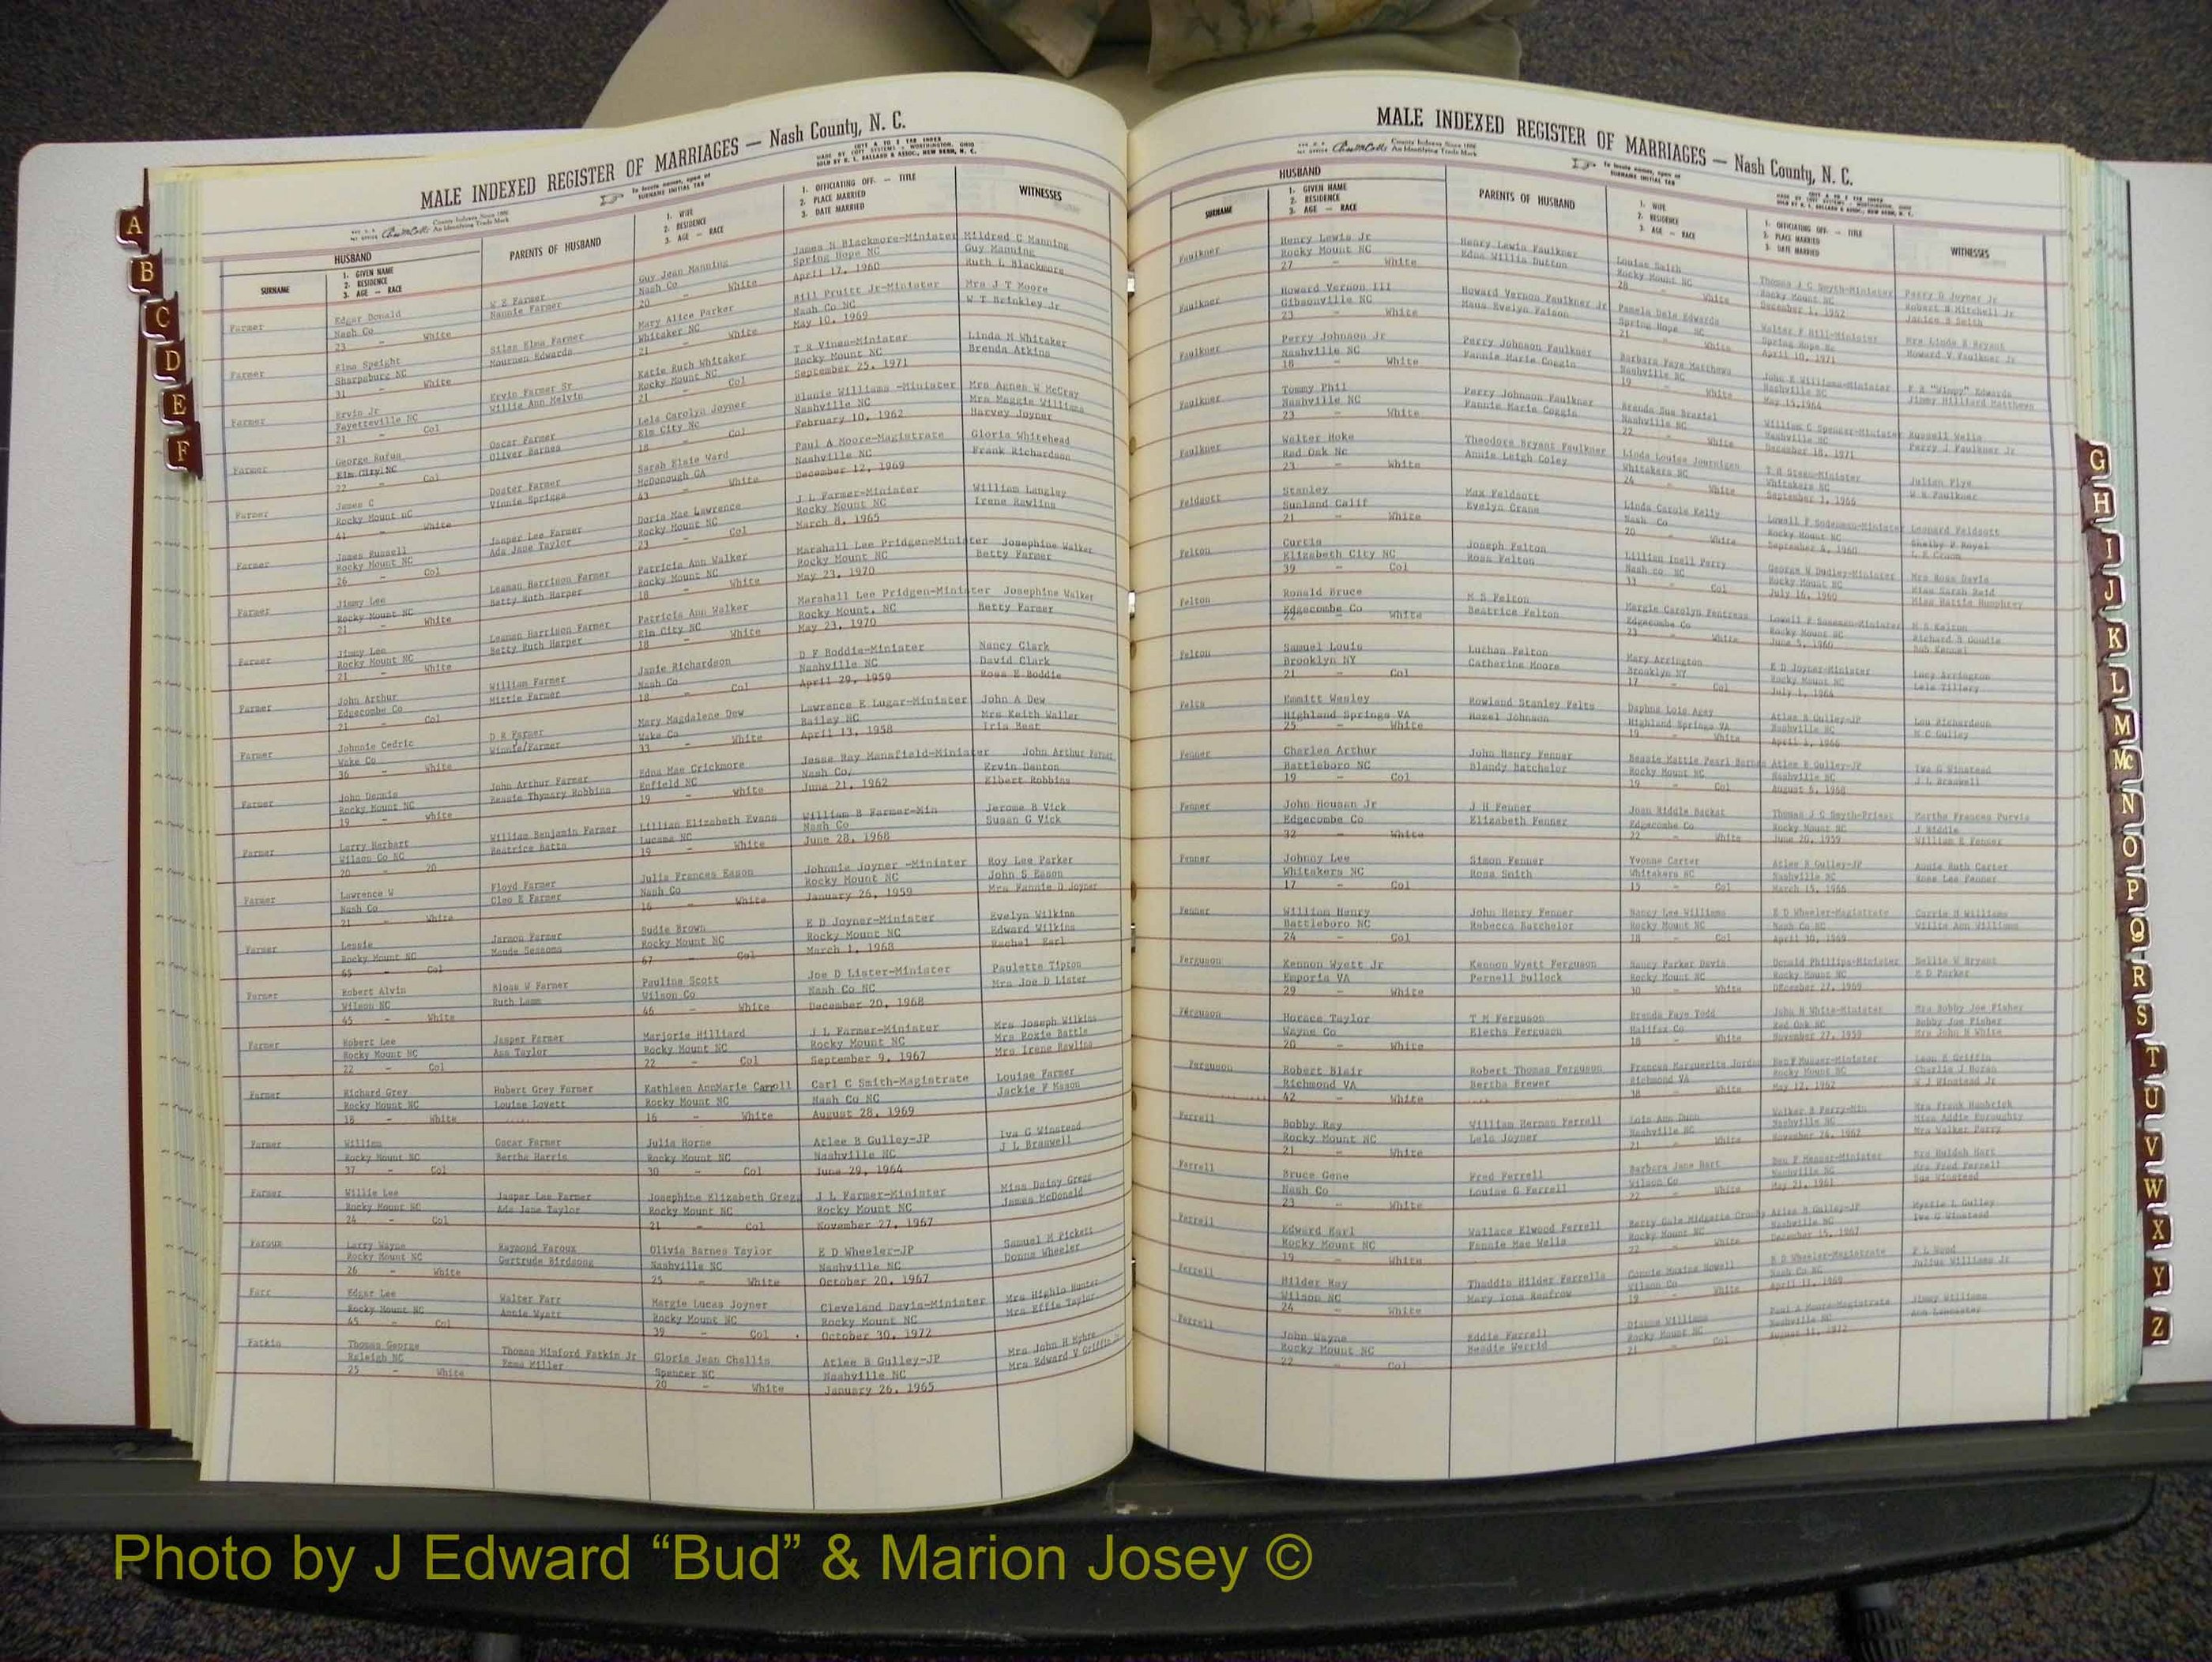 MALE INDEXED REGISTER OF MARRIAGES — Nash County, N. C.
HUSBAND
SURNAME
1. GIVEN NAME
2. RESIDENCE
3. AGE — RACE
PARENTS OF HUSBAND
1. WIFE
2. RESIDENCE
3. AGE — RACE
1. OFFICIATING OFF. — TITLE
2. PLACE MARRIED
3. DATE MARRIED
WITNESSES
Farmer Edgar Donald W E Farmer Guy Jean Manning James H Blackmore-Minister Mildred C Manning
Nash Co Nannie Farmer Nash Co Spring Hope NC Guy Manning
23 - White 20 - White April 17, 1960 Ruth L Blackmore
Farmer Elma Speight Silas Elma Farmer Mary Alice Parker Bill Pruitt Jr-Minister Mrs J T Moore
Sharpsburg NC Mournen Edwards Whitaker NC Nash Co NC W T Brinkley Jr
31 - White 21 - White May 10, 1969
Farmer Ervin Jr Ervin Farmer Sr Katie Ruth Whitaker T R Vines-Minister Linda M Whitaker
Fayetteville NC Willie Ann Melvin Rocky Mount NC Rocky Mount NC Brenda Atkins
21 - Col 21 - Col September 25, 1971
Farmer George Rufus Oscar Farmer Lela Carolyn Joyner Blanie Williams -Minister Mrs Agnes W McCray
Elm City NC Oliver Barnes Elm City NC Nashville NC Mrs Maggie Williams
22 - Col 18 - Col February 10, 1962 Harvey Joyner
Farmer James C Doster Farmer Sarah Elsie Ward Paul A Moore-Magistrate Gloria Whitehead
Rocky Mount NC Vinnie Spriggs McDonough GA Nashville NC Frank Richardson
41 - White 43 - White December 12, 1969
Farmer James Russell Jasper Lee Farmer Doris Mae Lawrence J L Farmer-Minister William Langley
Rocky Mount NC Ada Jane Taylor Rocky Mount NC Rocky Mount NC Irene Rawlins
26 - Col 23 - Col March 8, 1965
Farmer Jimmy Lee Leaman Harrison Farmer Patricia Ann Walker Marshall Lee Pridgen-Minister Josephine Walker
Rocky Mount NC Betty Ruth Harper Rocky Mount NC Rocky Mount NC Betty Farmer
21 - White 18 - White May 23, 1970
Farmer Jimmy Lee Leaman Harrison Farmer Patricia Ann Walker Marshall Lee Pridgen-Minister Josephine Walker
Rocky Mount NC Betty Ruth Harper Elm City NC Rocky Mount, NC Betty Farmer
21 - White 18 - White May 23, 1970
Farmer John Arthur William Farmer Janie Richardson D F Boddie-Minister Nancy Clark
Edgecombe Co Mittie Farmer Nash Co Nashville NC David Clark
21 - Col 18 - Col April 29, 1959 Rosa E Boddie
Farmer Johnnie Cedric D R Farmer Mary Magdalene Dew Lawrence E Lugar-Minister John A Dew
Wake Co Winnie Farmer Wake Co Bailey NC Mrs Keith Waller
36 - White 33 - White April 13, 1958 Iris Best
Farmer John Dennis John Arthur Farmer Edna Mae Crickmore Jesse Ray Mansfield-Minister John Arthur Farmer
Rocky Mount NC Bessie Thymary Robbins Enfield NC Nash Co, Ervin Danton
19 - white 19 - white June 21, 1962 Elbert Robbins
Farmer Larry Herbert William Benjamin Farmer Lillian Elizabeth Evans William B Farmer-Min Jerome B Vick
Wilson Co NC Beatrice Batts Lucama NC Nash Co Susan G Vick
20 - 20 19 - White June 28, 1968
Farmer Lawrence W Floyd Farmer Julia Frances Eason Johnnie Joyner -Minister Roy Lee Parker
Nash Co Cleo E Farmer Nash Co Rocky Mount NC John S Eason
21 - White 16 - White January 26, 1959 Mrs Fannie D Joyner
Farmer Lessie Jarmon Farmer Sudie Brown E D Joyner-Minister Evelyn Wilkins
Rocky Mount NC Maude Sessoms Rocky Mount NC Rocky Mount NC Edward Wilkins
65 - Col 67 - Col March 1, 1968 Rachel Earl
Farmer Robert Alvin Bloss W Farmer Pauline Scott Joe D Lister-Minister Paulette Tipton
Wilson NC Ruth Lamm Wilson Co Nash Co NC Mrs Joe D Lister
45 - White 46 - White December 20, 1968
Farmer Robert Lee Jasper Farmer Marjorie Hilliard J L Farmer-Minister Mrs Joseph Wilkins
Rocky Mount NC Ann Taylor Rocky Mount NC Rocky Mount NC Mrs Roxie Battle
22 - Col 22 - Col September 9, 1967 Mrs Irene Rawlins
Farmer Richard Grey Robert Grey Farmer Kathleen AnnMarie Carroll Carl C Smith-Magistrate Louise Farmer
Rocky Mount NC Louise Lovett Rocky Mount NC Nash Co NC Jackie F Mason
18 - White 16 - White August 28, 1969
Farmer William Oscar Farmer Julia Horne Atlee B Gulley-JP Iva G Winstead
Rocky Mount NC Bertha Harris Rocky Mount NC Nashville NC J L Braswell
37 - Col 30 - Col June 29, 1964
Farmer Willie Lee Jasper Lee Farmer Josephine Elizabeth Gregg J L Farmer-Minister Miss Daisy Gregg
Rocky Mount NC Ada Jane Taylor Rocky Mount NC Rocky Mount NC James McDonald
24 - Col 21 - Col November 27, 1967
Faroux Larry Wayne Raymond Faroux Olivia Barnes Taylor E D Wheeler-JP Samuel M Pickett
Rocky Mount NC Gertrude Birdsong Nashville NC Nashville NC Donna Wheeler
26 - White 25 - White October 20, 1967
Farr Edgar Lee Walter Farr Margie Lucas Joyner Cleveland Davis-Minister Mrs Highla Hunter
Rocky Mount NC Annie Wyatt Rocky Mount NC Rocky Mount NC Mrs Effie Taylor
45 - Col 39 - Col October 30, 1972
Fatkin Thomas George Thomas Minford Fatkin Jr Gloria Jean Challis Atlee B Gulley-JP
Raleigh NC Emma Miller Spencer NC Nashville NC Mrs Edward V Griffin Jr
25 - White 20 - White January 26, 1965
MALE INDEXED REGISTER OF MARRIAGES — Nash County, N. C.
HUSBAND
SURNAME
1. GIVEN NAME
2. RESIDENCE
3. AGE — RACE
PARENTS OF HUSBAND
1. WIFE
2. RESIDENCE
3. AGE — RACE
1. OFFICIATING OFF. — TITLE
2. PLACE MARRIED
3. DATE MARRIED
WITNESSES
Faulkner Henry Lewis Jr Henry Lewis Faulkner Louise Smith Thomas J C Smyth-Minister Perry D Joyner Jr
Rocky Mount NC Edna Willis Dutton Rocky Mount NC Rocky Mount NC Robert B Mitchell Jr
27 - White 28 - White December 1, 1962 Janice B Smith
Faulkner Howard Vernon III Howard Vernon Faulkner Jr Pamela Dale Edwards Walter F Hill-Minister Mrs Linda E Bryant
Gibsonville NC Maus Evelyn Faison Spring Hope NC Spring Hope NC Howard V Faulkner Jr
23 - White 21 - White April 10, 1971
Faulkner Perry Johnson Jr Perry Johnson Faulkner Barbara Faye Matthews John E Williams-Minister F R "Wimpy" Edwards
Nashville NC Fannie Marie Coggin Nashville NC Nashville NC Jimmy Hilliard Matthews
18 - White 19 - White May 15,1966
Faulkner Tommy Phil Perry Johnson Faulkner Brenda Sue Braxtel William C Spencer-Minister Russell Wells
Nashville NC Fannie Marie Coggin Nashville NC Nashville NC Perry J Faulkner Jr
23 - White 22 - White December 18, 1971
Faulkner Walter Hoke Theodore Bryant Faulkner Linda Louise Journigen Minister Julian Flye
Red Oak Nc Annie Leigh Coley Whitakers NC Whitakers NC W B Faulkner
23 - White 24 - White September 3, 1966
Feldsott Stanley Max Feldsott Linda Carole Kelly Lowell F Sodeman-Minister Leonard Feldsott
Sunland Calif Evelyn Crane Nash Co Rocky Mount NC Shelby P Royal
21 - White 20 - White September 6, 1960
Felton Curtis Joseph Felton Lillian Inell Perry George W Dudley-Minister Mrs Rosa Davis
Elizabeth City NC Rosa Felton Nash co NC Rocky Mount NC Miss Sarah Reid
39 - Col 33 - Col July 16, 1960 Miss Hattie Humphrey
Felton Ronald Bruce M S Felton Margie Carolyn Fentress Lowell F Sodeman-Minister M S Felton
Edgecombe Co Beatrice Felton Edgecombe Co Rocky Mount NC Richard B Goudie
22 - White 23 - White June 5, 1960
Felton Samuel Louis Luthan Felton Mary Arrington E D Joyner-Minister Lucy Arrington
Brooklyn NY Catherine Moore Brooklyn NY Rocky Mount NC Lela Tillery
21 - Col 17 - Col July 1, 1964
Felts Emmitt Wesley Rowland Stanley Felts Daphne Lois Agey Atlee B Gulley-JP Lou Richardson
Highland Springs VA Hazel Johnson Highland Springs VA Nashville NC M C Gulley
25 - White 19 - White April 1966
Fenner Charles Arthur John Henry Fenner Bessie Mattie Pearl Atlee B Gulley-JP Iva G Winstead
Battleboro NC Blandy Batchelor Rocky Mount NC Nashville NC J L Braswell
19 - Col 19 - Col August 6, 1968
Fenner John Housan Jr J H Fenner Joan Riddle Backat Thomas J C Smyth-Priest Martha Frances Purvis
Edgecombe Co Elizabeth Fenner Edgecombe Co Rocky Mount NC J Riddle
32 - White 22 - White June 20, 1959 William E Fenner
Fenner Johnny Lee Simon Fenner Yvonne Carter Atlee B Gulley-JP Annie Ruth Carter
Whitakers NC Rosa Smith Whitakers NC Nashville NC Rosa Lee Fenner
17 - Col 15 - Col March 15, 1966
Fenner William Henry John Henry Fenner Nancy Lee Williams E D Wheeler-Magistrate Carrie H Williams
Battleboro NC Rebecca Batchelor Rocky Mount NC Nash Co NC Willie Ann Williams
24 - Col 18 - Col April 30, 1969
Ferguson Kennon Wyett Jr Kennon Wyett Ferguson Nancy Parker Davis Donald Phillips-Minister Nellie W Bryant
Emporia VA Pernell Bullock Rocky Mount NC Rocky Mount NC E D Parker
29 - White 30 - White December 27, 1969
Ferguson Horace Taylor T M Ferguson Brenda Faye Todd John H White-Minister Mrs Bobby Joe Fisher
Wayne Co Bletha Ferguson Halifax Co Red Oak NC Bobby Joe Fisher
20 - White 18 - White November 27, 1959 Mrs John H White
Ferguson Robert Blair Robert Thomas Ferguson Frances Marguerite Jordan Minister Leon E Griffin
Richmond VA Bertha Brewer Richmond VA Rocky Mount NC Charlie J Horan
42 - White 38 - White May 12, 1962 W J Winstead Jr
Ferrell Bobby Ray William Herman Ferrell Lois Ann Dunn Walker B Perry-Min Mrs Frank Hambrick
Rocky Mount NC Lela Joyner Nashville NC Nashville NC Miss Addie
21 - White 21 - White November 24, 1962 Mrs Walker Perry
Ferrell Bruce Gene Fred Ferrell Barbara Jane Hart Minister Mrs Huldah Hart
Nash Co Louise G Ferrell Wilson Co Nashville NC Mrs Fred Ferrell
23 - White 22 - White May 21, 1961 Sue Winstead
Ferrell Edward Earl Wallace Elwood Ferrell Betty Gale Midgette Atlee B Gulley-JP Myrtie L Gulley
Rocky Mount NC Fannie Mae Wells Rocky Mount NC Nashville NC Iva G Winstead
19 - White 22 - White December 15, 1967
Ferrell Hilder Ray Thaddis Hilder Ferrells Connie Maxine Howell E D Wheeler-Magistrate
Wilson NC Mary Iona Renfrow Wilson Co Nash Co NC Julius Williams Jr
24 - White 19 - White April 11, 1969
Ferrell John Wayne Eddie Ferrell Dianne Williams Paul A Moore-Magistrate Jimmy Williams
Rocky Mount NC Beadie Werrid Rocky Mount NC Nashville NC Ann Lancaster
22 - Col 21 - Col August 11, 1972
A
B
C
D
E
F
G
H
I
J
K
L
M
Mc
N
O
P
Q
R
S
T
U
V
W
X
Y
Z
Photo by J Edward “Bud” & Marion Josey ©